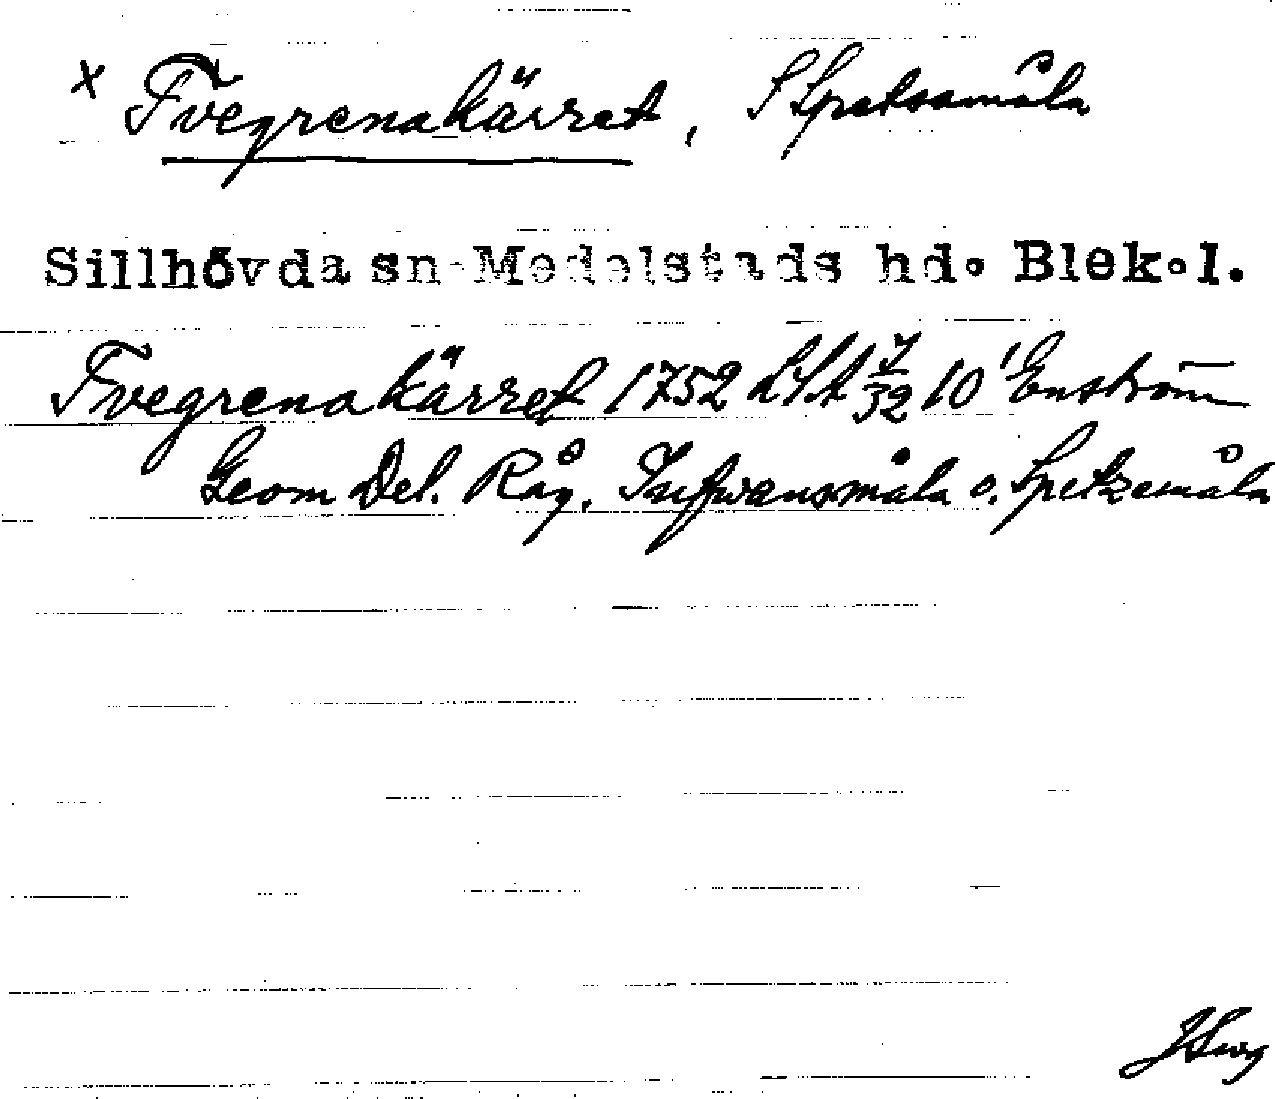 x Tvegrenakärret, S Spetsamåla
Sillhövda sn Medelstads hd. Blek.l.
Tvegrenakärret 1752 LSA 7/32 10 Enström
Geom Del. Råg. Tufwansmåla o. Spetzemåla